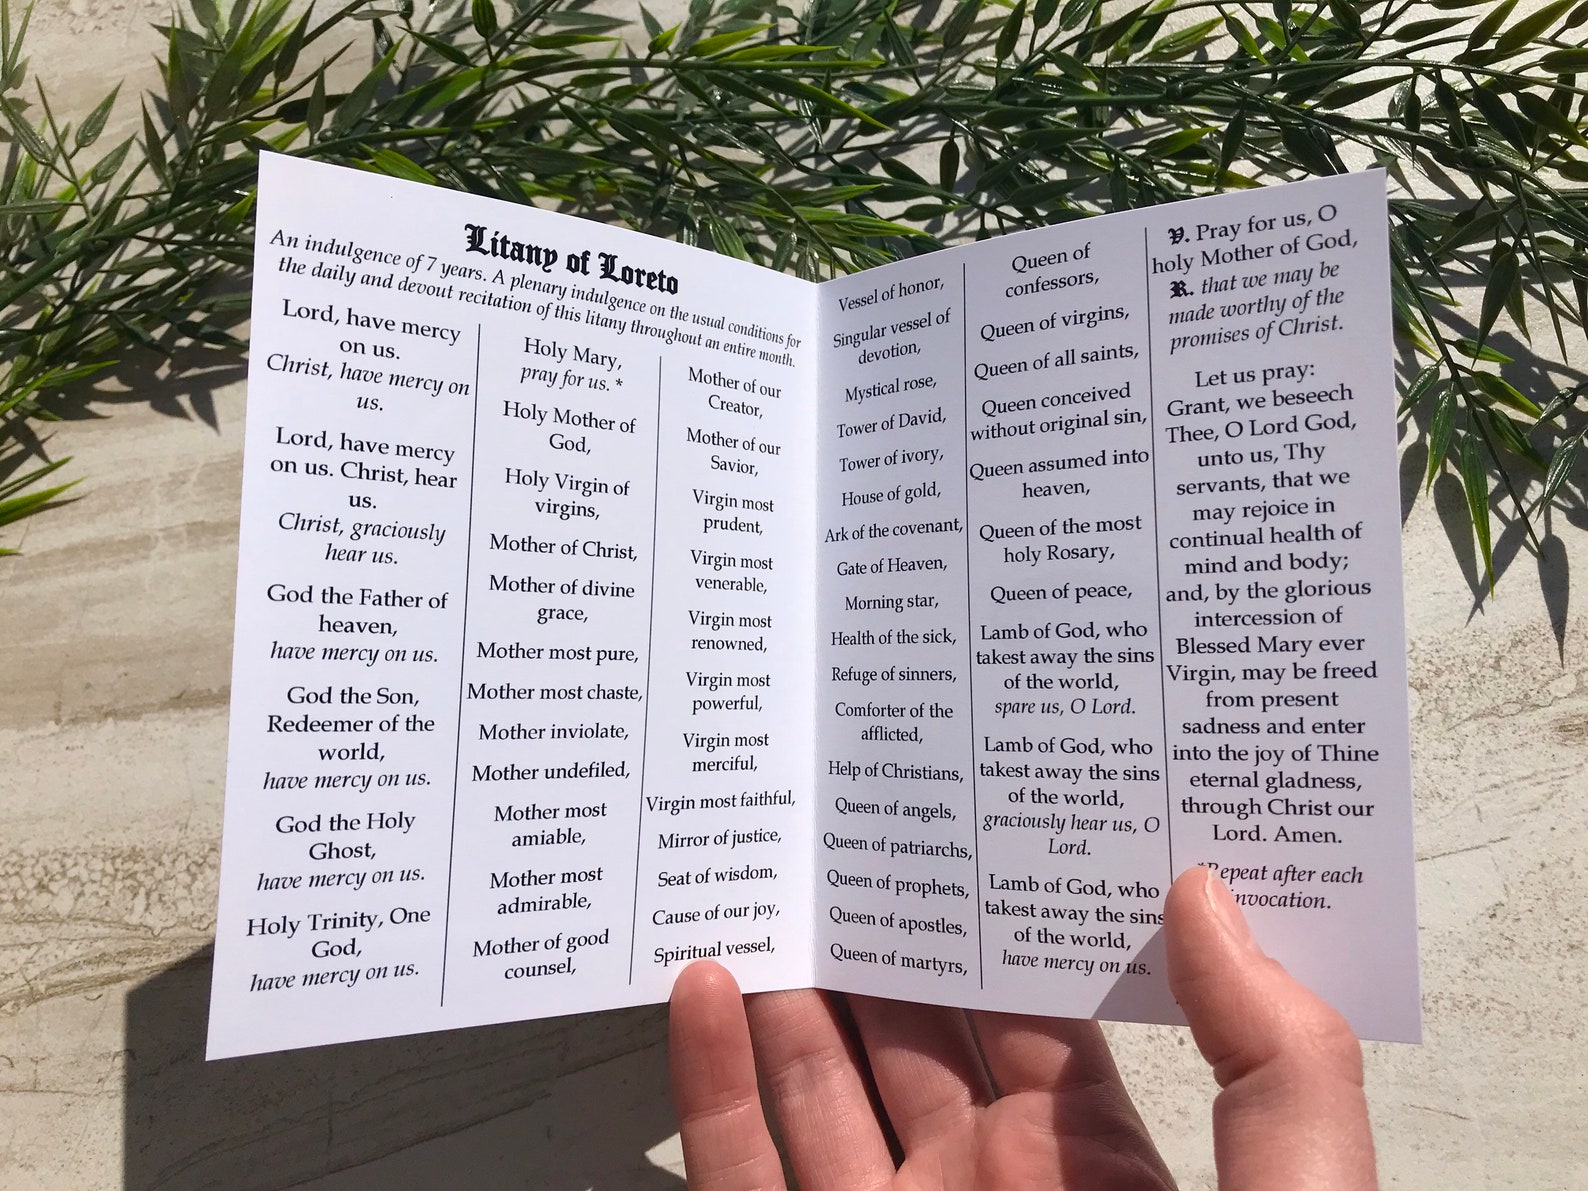 Litany of Loreto
An indulgence of 7 years. A plenary indulgence on the usual conditions for
the daily and devout recitation of this litany throughout an entire month.
Lord, have mercy
on us.
Christ, have mercy on
us.
Lord, have mercy
on us. Christ, hear
us.
Christ, graciously
hear us.
God the Father of
heaven,
have mercy on us.
God the Son,
Redeemer of the
world,
have mercy on us.
God the Holy
Ghost,
have mercy on us.
Holy Trinity, One
God,
have mercy on us.
Holy Mary,
pray for us. *
Holy Mother of
God,
Holy Virgin of
virgins,
Mother of Christ,
Mother of divine
grace,
Mother most pure,
Mother most chaste,
Mother inviolate,
Mother undefiled,
Mother most
amiable,
Mother most
admirable,
Mother of good
counsel,
Mother of our
Creator,
Mother of our
Savior,
Virgin most
prudent,
Virgin most
venerable,
Virgin most
renowned,
Virgin most
powerful,
Virgin most
merciful,
Virgin most faithful,
Mirror of justice,
Seat of wisdom,
Cause of our joy,
Spiritual vessel,
Vessel of honor,
Singular vessel of
devotion,
Mystical rose,
Tower of David,
Tower of ivory,
House of gold,
Ark of the covenant,
Gate of Heaven,
Morning star,
Health of the sick,
Refuge of sinners,
Comforter of the
afflicted,
Help of Christians,
Queen of angels,
Queen of patriarchs,
Queen of prophets,
Queen of apostles,
Queen of martyrs,
Queen of
confessors,
Queen of virgins,
Queen of all saints,
Queen conceived
without original sin,
Queen assumed into
heaven,
Queen of the most
holy Rosary,
Queen of peace,
Lamb of God, who
takest away the sins
of the world,
spare us, O Lord.
Lamb of God, who
takest away the sins
of the world,
graciously hear us, O
Lord.
Lamb of God, who
takest away the sins
of the world,
have mercy on us.
V. Pray for us, O
holy Mother of God,
R. that we may be
made worthy of the
promises of Christ.
Let us pray:
Grant, we beseech
Thee, O Lord God,
unto us, Thy
servants, that we
may rejoice in
continual health of
mind and body;
and, by the glorious
intercession of
Blessed Mary ever
Virgin, may be freed
from present
sadness and enter
into the joy of Thine
eternal gladness,
through Christ our
Lord. Amen.
*Repeat after each
invocation.